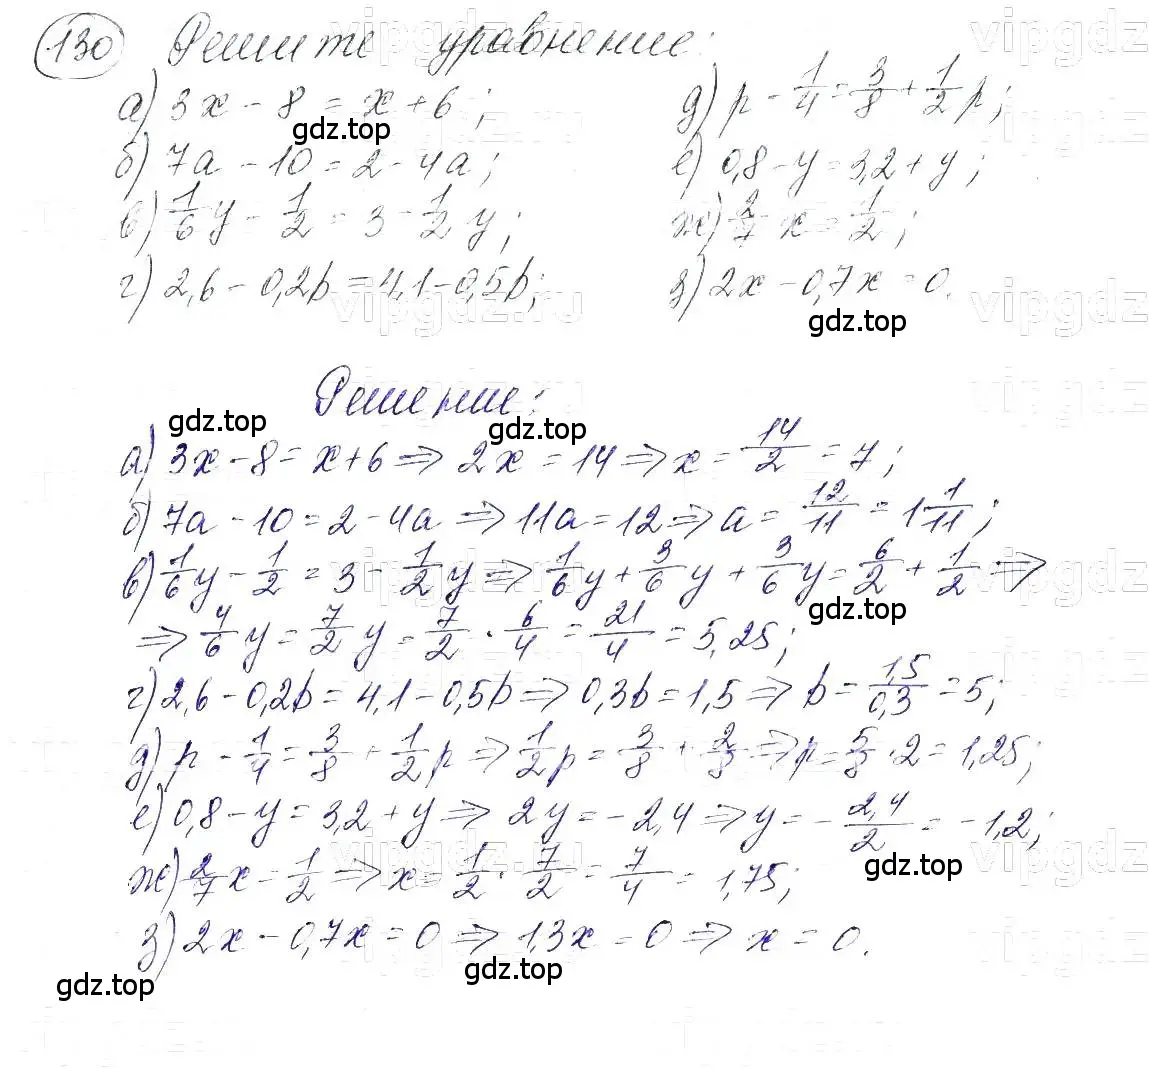 130 Решите уравнение:
а) 3x - 8 = x + 6;
б) 7a - 10 = 2 - 4a;
в) 1/6 y - 1/2 = 3 - 1/2 y;
г) 2,6 - 0,2b = 4,1 - 0,5b;
д) p - 1/4 = 3/8 + 1/2 p;
е) 0,8 - y = 3,2 + y;
ж) 2/7 x = 1/2;
з) 2x - 0,7x = 0.
gdz.top
gdz.top
Решение:
gdz.top
gdz.top
а) 3x - 8 = x + 6 ⇒ 2x = 14 ⇒ x = 14/2 = 7;
б) 7a - 10 = 2 - 4a ⇒ 11a = 12 ⇒ a = 12/11 = 1 1/11;
в) 1/6 y - 1/2 = 3 - 1/2 y ⇒ 1/6 y + 3/6 y + 3/6 y = 6/2 + 1/2 ⇒
gdz.top
⇒ 4/6 y = 7/2 y = 7/2 · 6/4 = 21/4 = 5,25;
г) 2,6 - 0,2b = 4,1 - 0,5b ⇒ 0,3b = 1,5 ⇒ b = 1,5/0,3 = 5;
д) p - 1/4 = 3/8 + 1/2 p ⇒ 1/2 p = 3/8 + 2/8 ⇒ p = 5/8 · 2 = 1,25;
е) 0,8 - y = 3,2 + y ⇒ 2y = -2,4 ⇒ y = - 2,4/2 = -1,2;
gdz.top
ж) 2/7 x = 1/2 ⇒ x = 1/2 · 7/2 = 7/4 = 1,75;
з) 2x - 0,7x = 0 ⇒ 1,3x = 0 ⇒ x = 0.
gdz.top
gdz.top
vipgdz.ru